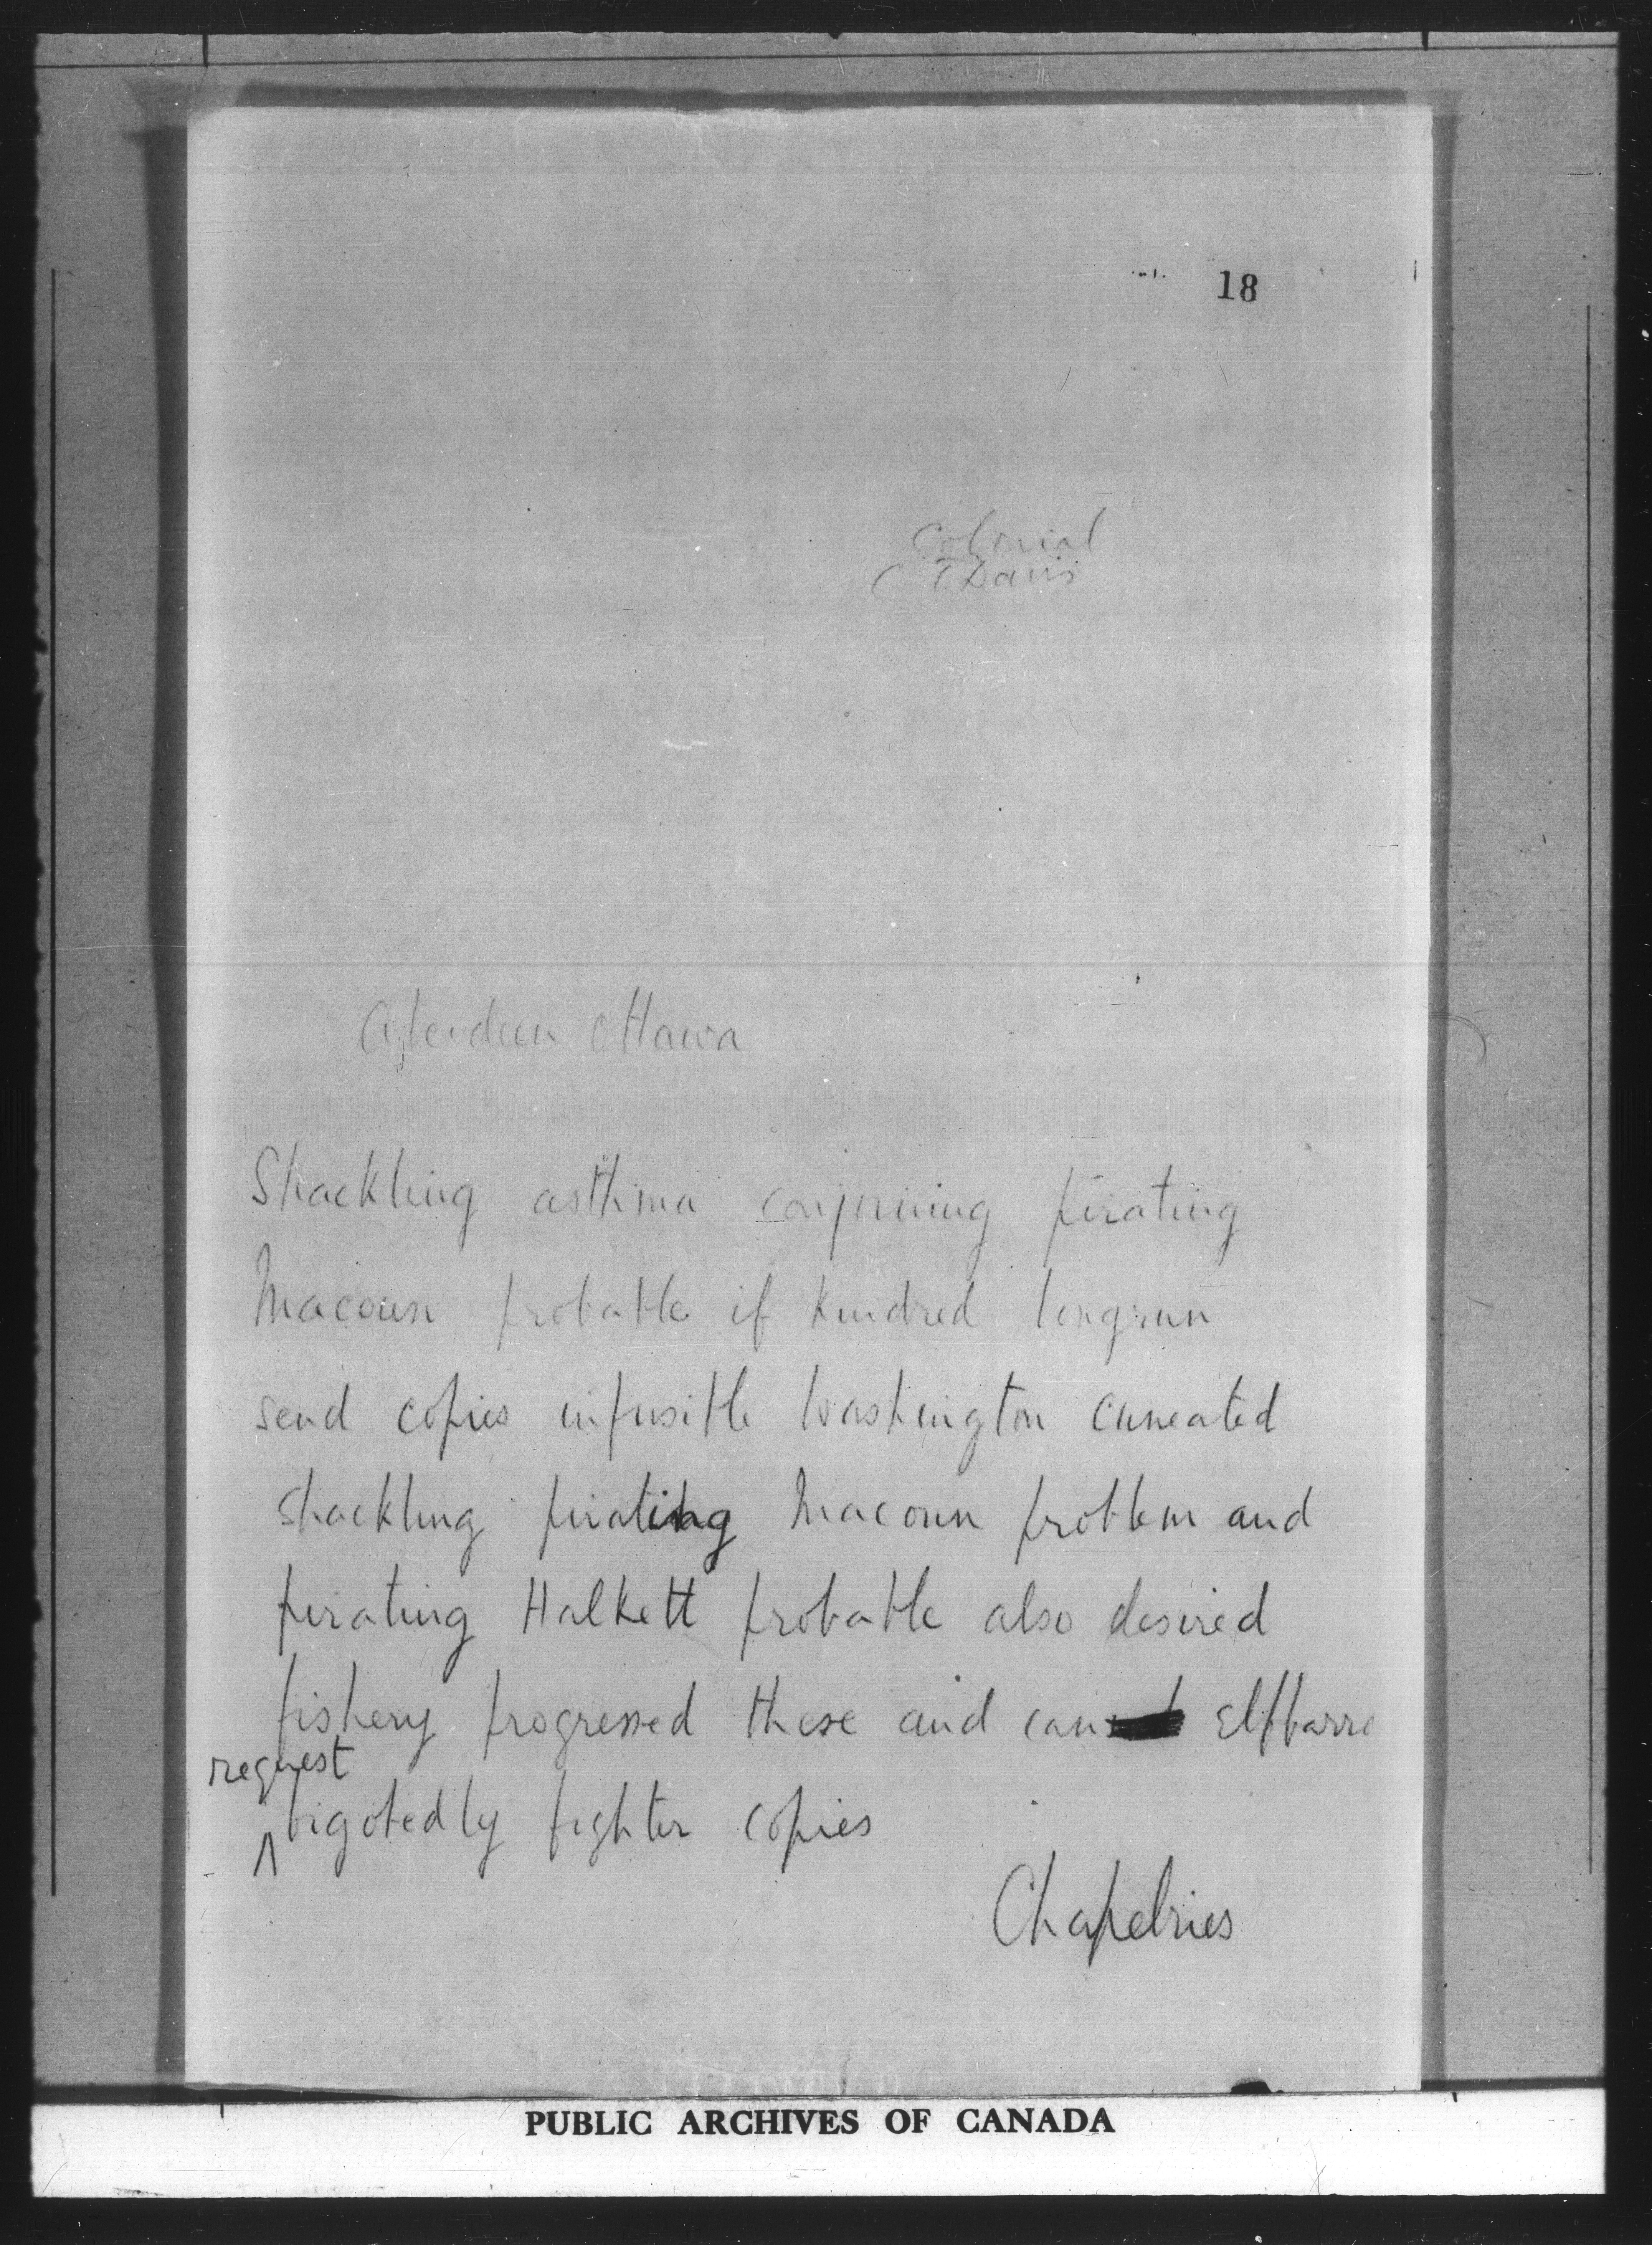 18
Colonial
C T Davis
Aberdeen Ottawa
Shackling asthma conjoining pirating
Macoun probable if kindred longrun
send copies infusible Washington cuneated
shackling pirating Macoun problem and
pirating Halkett probable also desired
fishery progressed these and can
request
bigotedly fighter copies
Chapelries
PUBLIC ARCHIVES OF CANADA